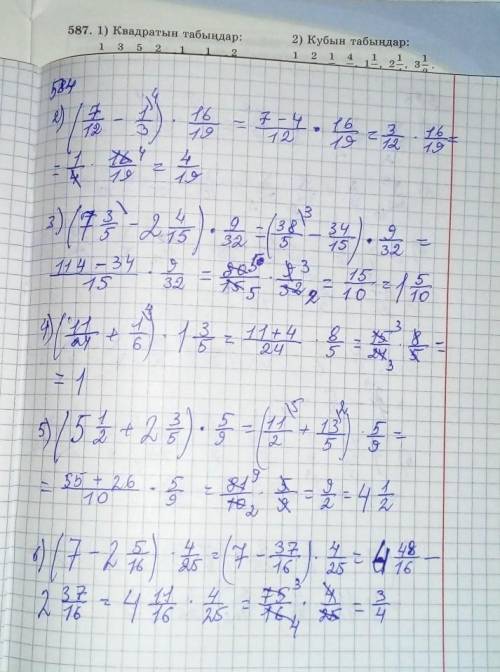 587. 1) Квадратын табыңдар: 2) Кубын табыңдар:
1 3 5 2 1 1 2 1 2 1 4 1 1/ 2 1/ 3 1/
584
2) (7/12 - 1/3\4) · 16/19 = (7-4)/12 · 16/19 = 3/12 · 16/19 =
= 1/4 · 16 4/19 = 4/19
3) (7 3/5\ - 2 4/15) · 9/32 = (38/5\3 - 34/15) · 9/32 =
(114-34)/15 · 9/32 = 80/15 5 · 9 3/32 2 = 15/10 = 1 5/10
4) (11/24 + 1/6\4) · 1 3/5 = (11+4)/24 · 8/5 = 15 3/24 3 · 8/5 =
= 1
5) (5 1/2 + 2 3/5) · 5/9 = (11/2\5 + 13/5\2) · 5/9 =
= (55+26)/10 · 5/9 = 81 9/10 2 · 5/9 = 9/2 = 4 1/2
6) (7 - 2 5/16) · 4/25 = (7 - 37/16) · 4/25 = 4 48/16 -
2 37/16 = 4 11/16 · 4/25 = 75 3/16 4 · 4/25 = 3/4